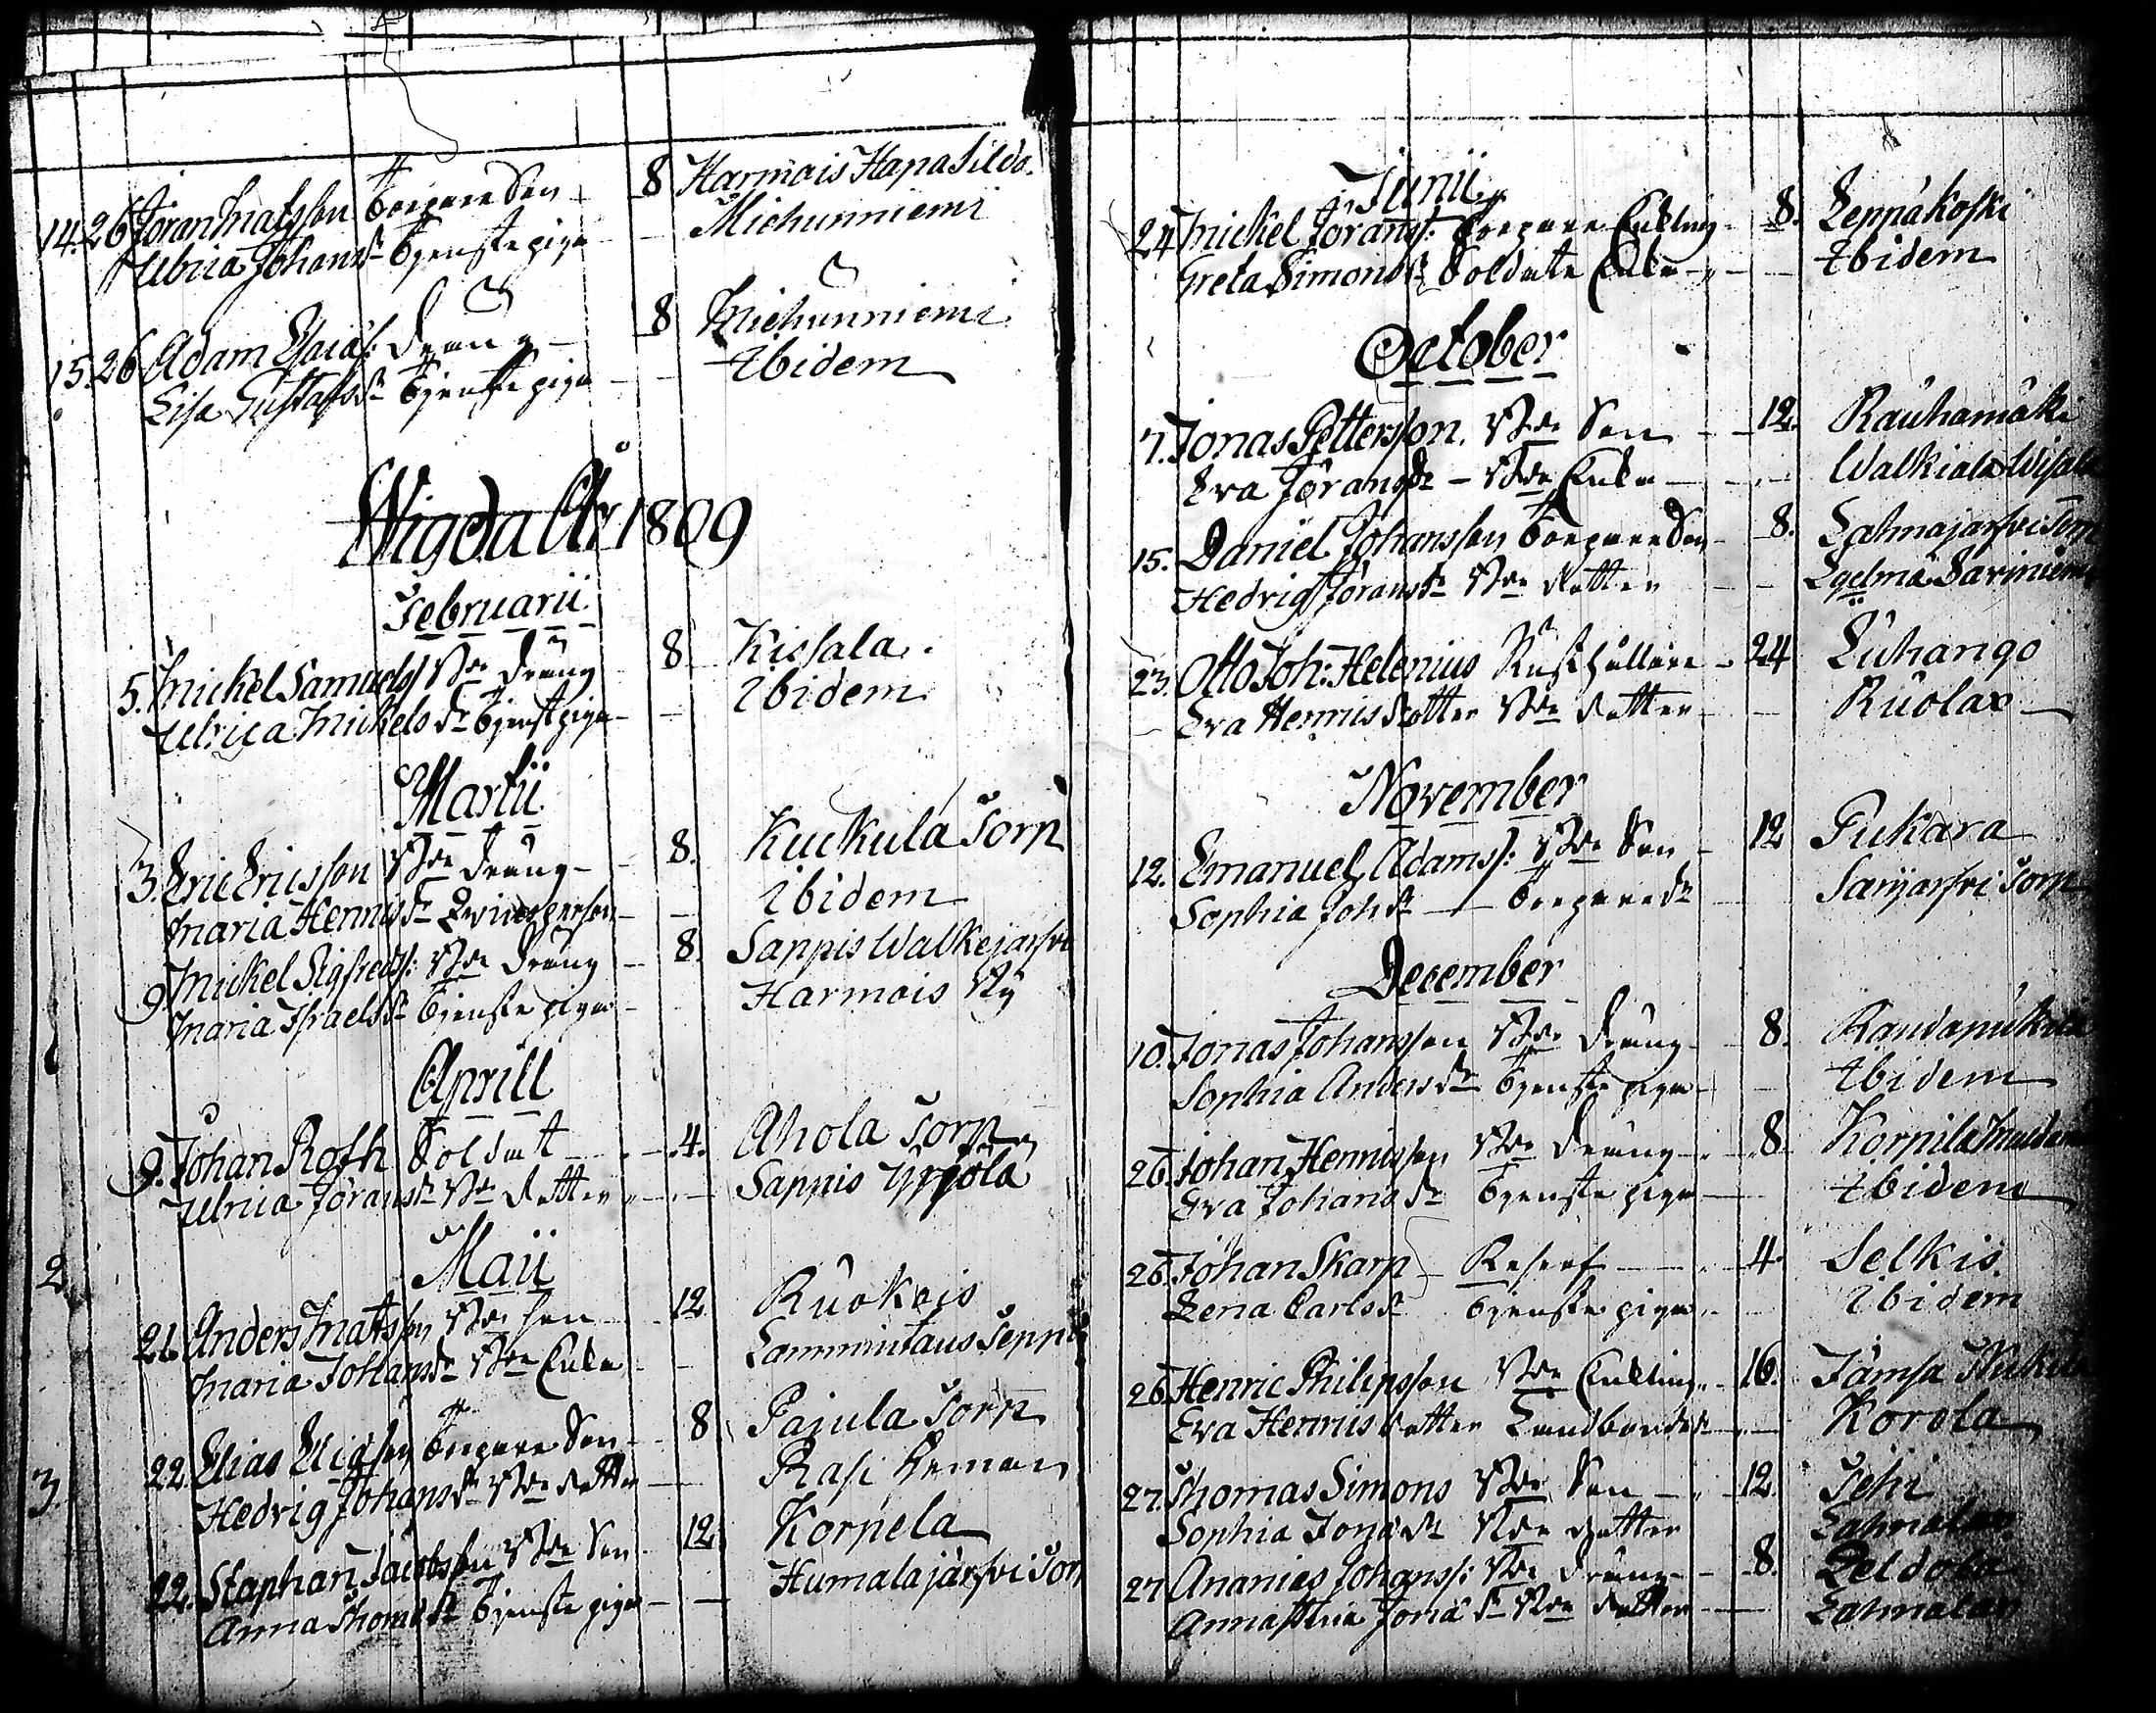 14. 26 Jöran Matsson Torpare Son 8 Harmois Hapasildo.
Ulrica Johansdr Tjenstepiga Michunniemi
15. 26 Adam Esaiæs: Dräng 8 Michunniemi
Lisa Gustafsdr Tjenstepiga Ibidem
Wigda År 1809
Februarii
5. Mickel Samuels: Bde Dräng 8 Kissala.
Ulrica Mickels dr Tjenstpiga Ibidem
Martii
3. Eric Ericsson Bde Dräng 8. Kuckula Torp
Maria Henricsdr Qvinsperson Ibidem
9. Mickel Sigfreds: Bde Dräng 8. Sappis Walkejarfvi
Maria Israelsdr Tjenstepiga Harmois By
Aprill
9. Johan Roth Soldat 4. Ahola Torp
Ulrica Jöransdr Bde dotter Sappis Yrjölä
2
Maii
21. Anders Matsson Bde son 12 Ruokois
Maria Johansdr Bde Enka Lammintaus Seppä
22. Elias Eliæson Torpare Son 8 Pajula Torp
3. Hedvig Johansdr Bde dotter Rasi
22. Staphan Jacobsson Bde Son 12. Korpela
Anna Thomædr Tjenste piga Humalajärfvi Torp
Junii
24 Mickel Jörans: Torpare Enkling 8. Leppäkoski
Greta Simonsdr Soldate Enka Ibidem
October
7. Jonas Pettersson. Bde Son 12. Rauhamäki
Eva Jöransdr Bde Enka Walkiala
15. Daniel Johansson Torpare Son 8. Lahnajarfvi Torp
Hedvig Jöransdr Bde dotter Sariniemi
23. Otto Joh: Helenius Rusthållare 24 Luhango
Eva Henricsdotter Bde dotter Ruolax
November
12. Emanuel Adams: Bde Son 12 Pukara
Sophia Johdr Torparedr Sarijarfvi Torp
December
10. Jonas Johansson Bde Dräng 8.
Sophia Andersdr Tjenste piga Ibidem
26. Johan Henricsson Bde Dräng 8. Korpila
Eva Johansdr Tjenste piga Ibidem
26. Johan Skarp Reserf 4. Selkis.
Lena Carlsdr Tjenste piga Ibidem
26. Henric Philipsson Bde Enkling 16. Jämsä
Eva Henricsdotter Landbondedr Korola
27. Thomas Simons Bde Son 12. Tehi
Sophia Jonædr Bde dotter Lahnalax
27 Ananias Johans: Bde Dräng 8. Peldola
Anna Stina Jonædr Bde dotter Lahnalax